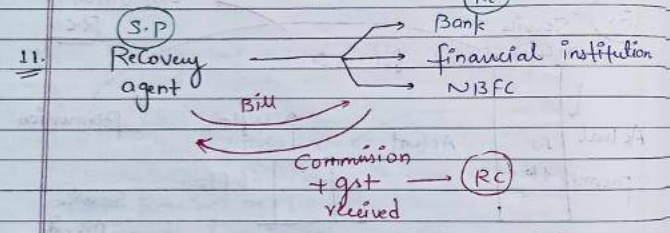 S.P
Bank
11. Recovery agent
financial institution
NBFC
Bill
Commission
+ gst
received
RC